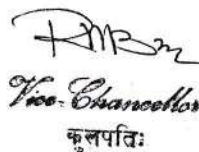 Vice-Chancellor
कुलपतिः